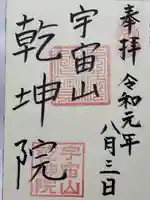 奉拝
令和元年
八月三日
宇宙山
乾坤院
宇宙山